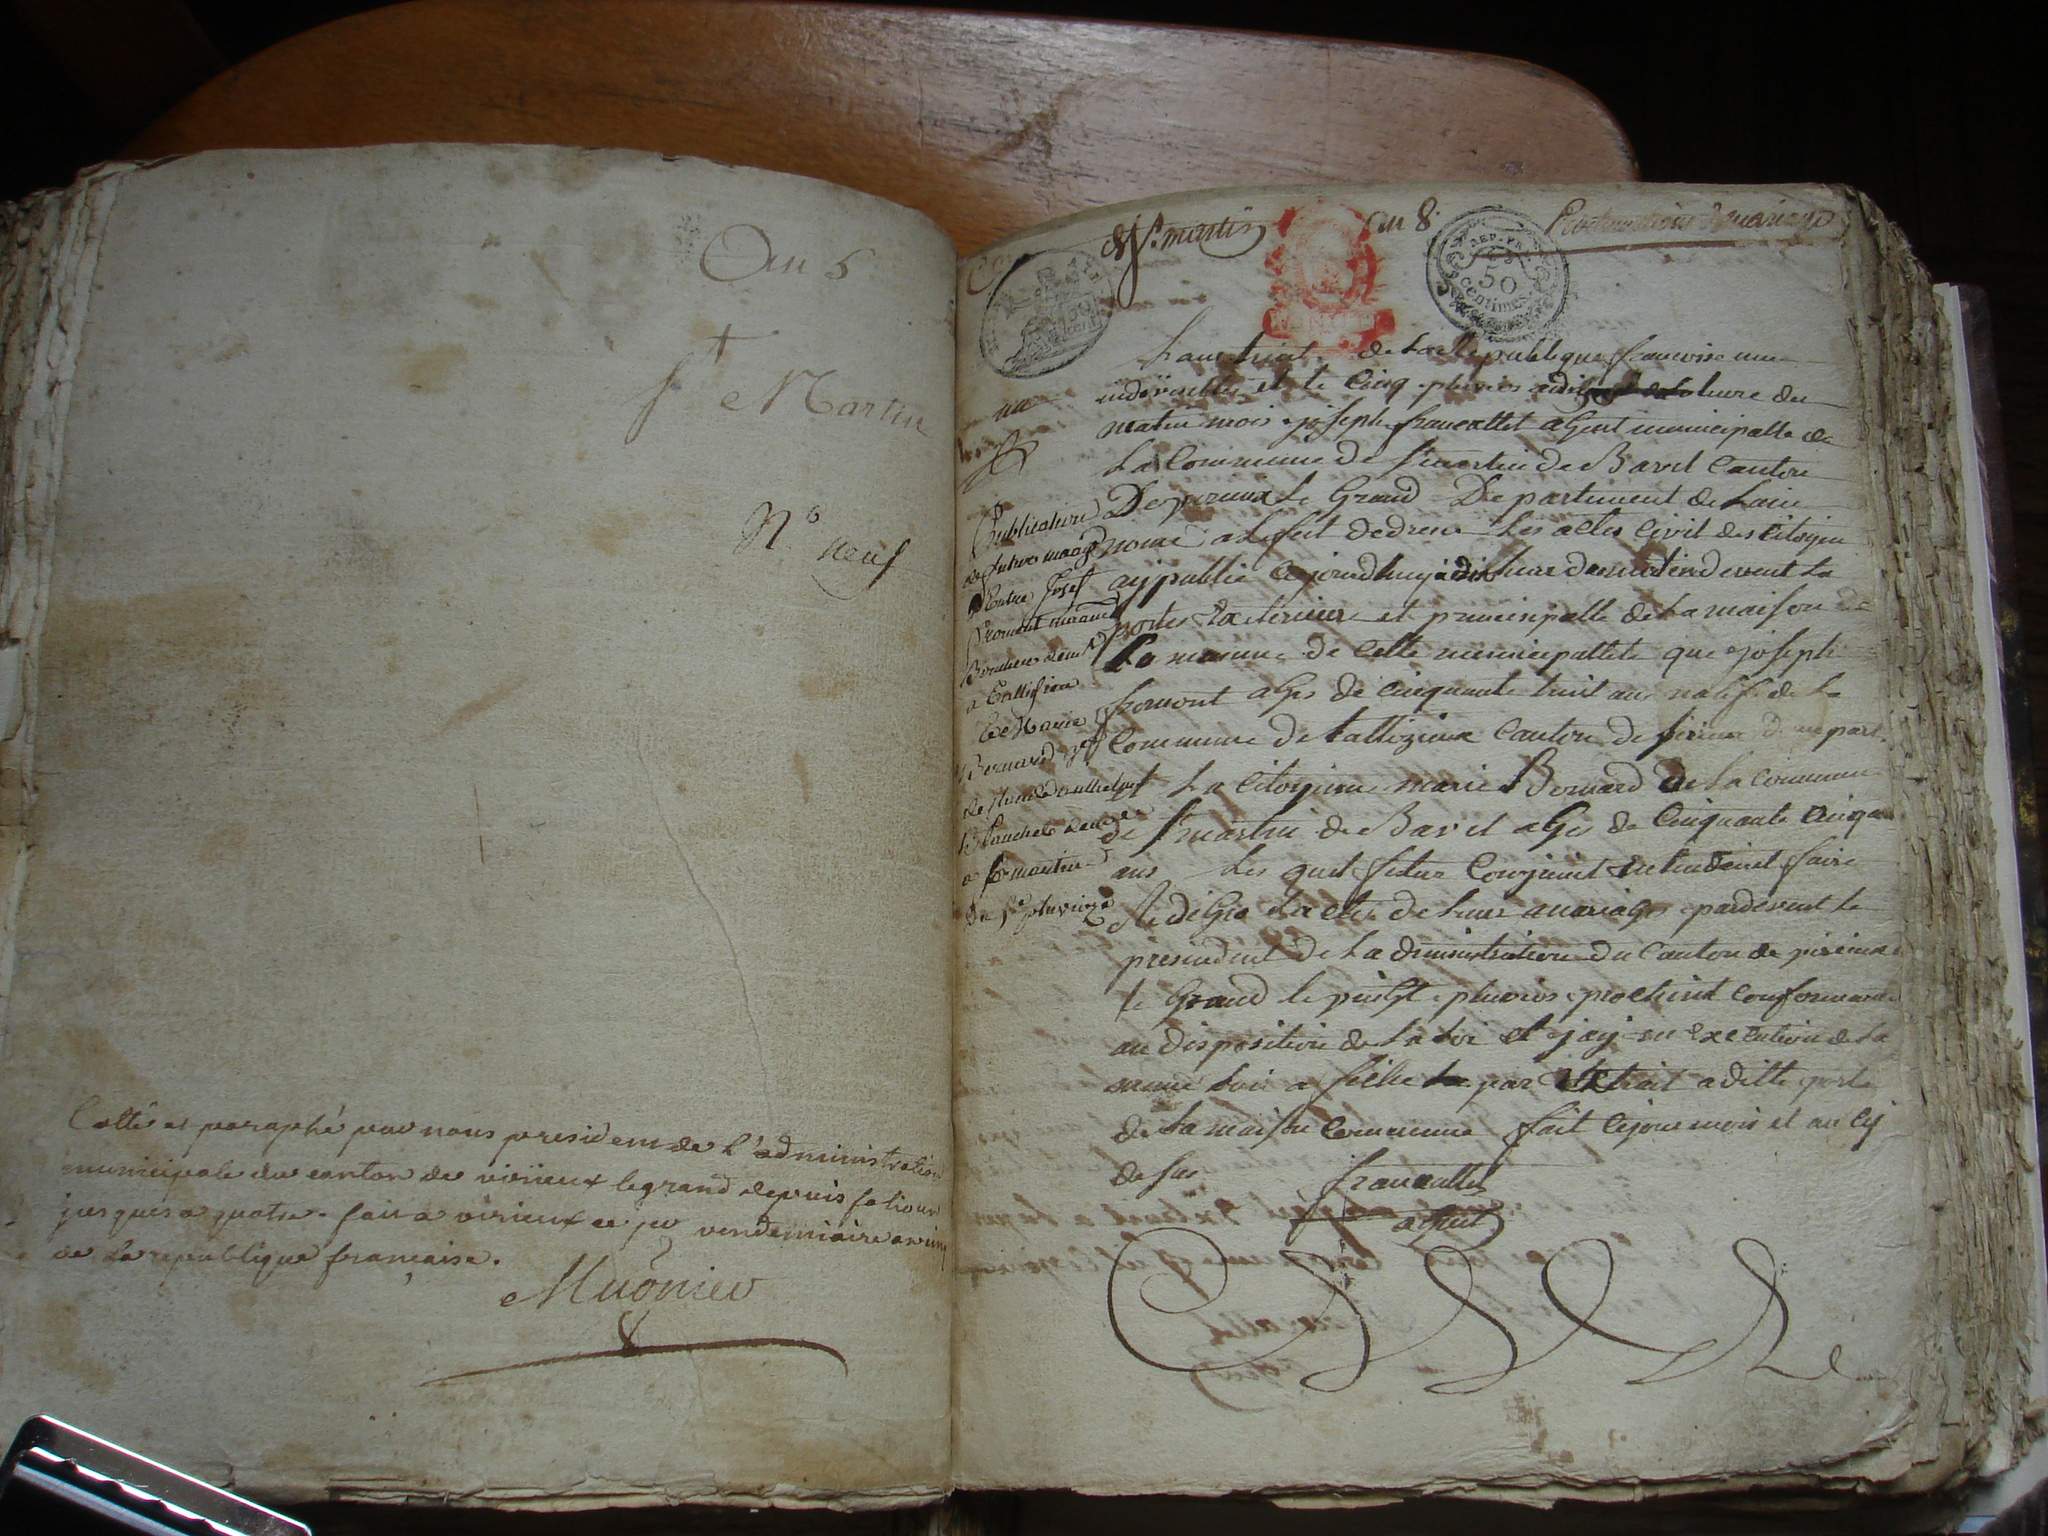 An 5
St Martin
No neuf
Cotté et paraphé par nous president de l'administration
municipale du canton de virieux legrand depuis folio un
jusques a quatre. fait a virieux ce vendemiaire an cinq
de la republique française.
Mugnier
St martin
an 8
Proclamations de mariage
REP. FRA.
50
centimes
Lan huit de la Republique francoise une
indivisible et le cinq pluvios a dix heure du
matin mois joseph francallet agent municipalle de
La Commune de St martin de Bavel Canton
De virieux le Grand Departement de Lain
nomé a L efet dedresé Les actes Civil des Citoijen
aij publie Cejourdhuij a dix heure du matin devent La
portes Exterieure et principalle de La maison
Commune de Cette municipallité que joseph
fromont agé de Cinquante huit ans natif de La
Commune de tallizieux Canton de virieux
Et La Citoijene marie Bernard de La commune
de St martin de Bavel agés de Cinquante Cinq
ans Les quel futur Conjoint entendent faire
Redigé Lacte de Leur mariage pardevent Le
presendent de La dministration du Canton de virieux
le Grand le vingt pluvios prochint conformement
au disposition de La Loi et jaij en Execution de La
meme Loi a fiché par Extrait a ditte porte
de La maison Commune fait Cejour mois et an Cij
de sus
francallet
agent
Publication
de futur mariage
Entre Josef
fromont
a Tallisieu
et Marie
Bernard
Blanchet
a St martin
Du 5e pluviose